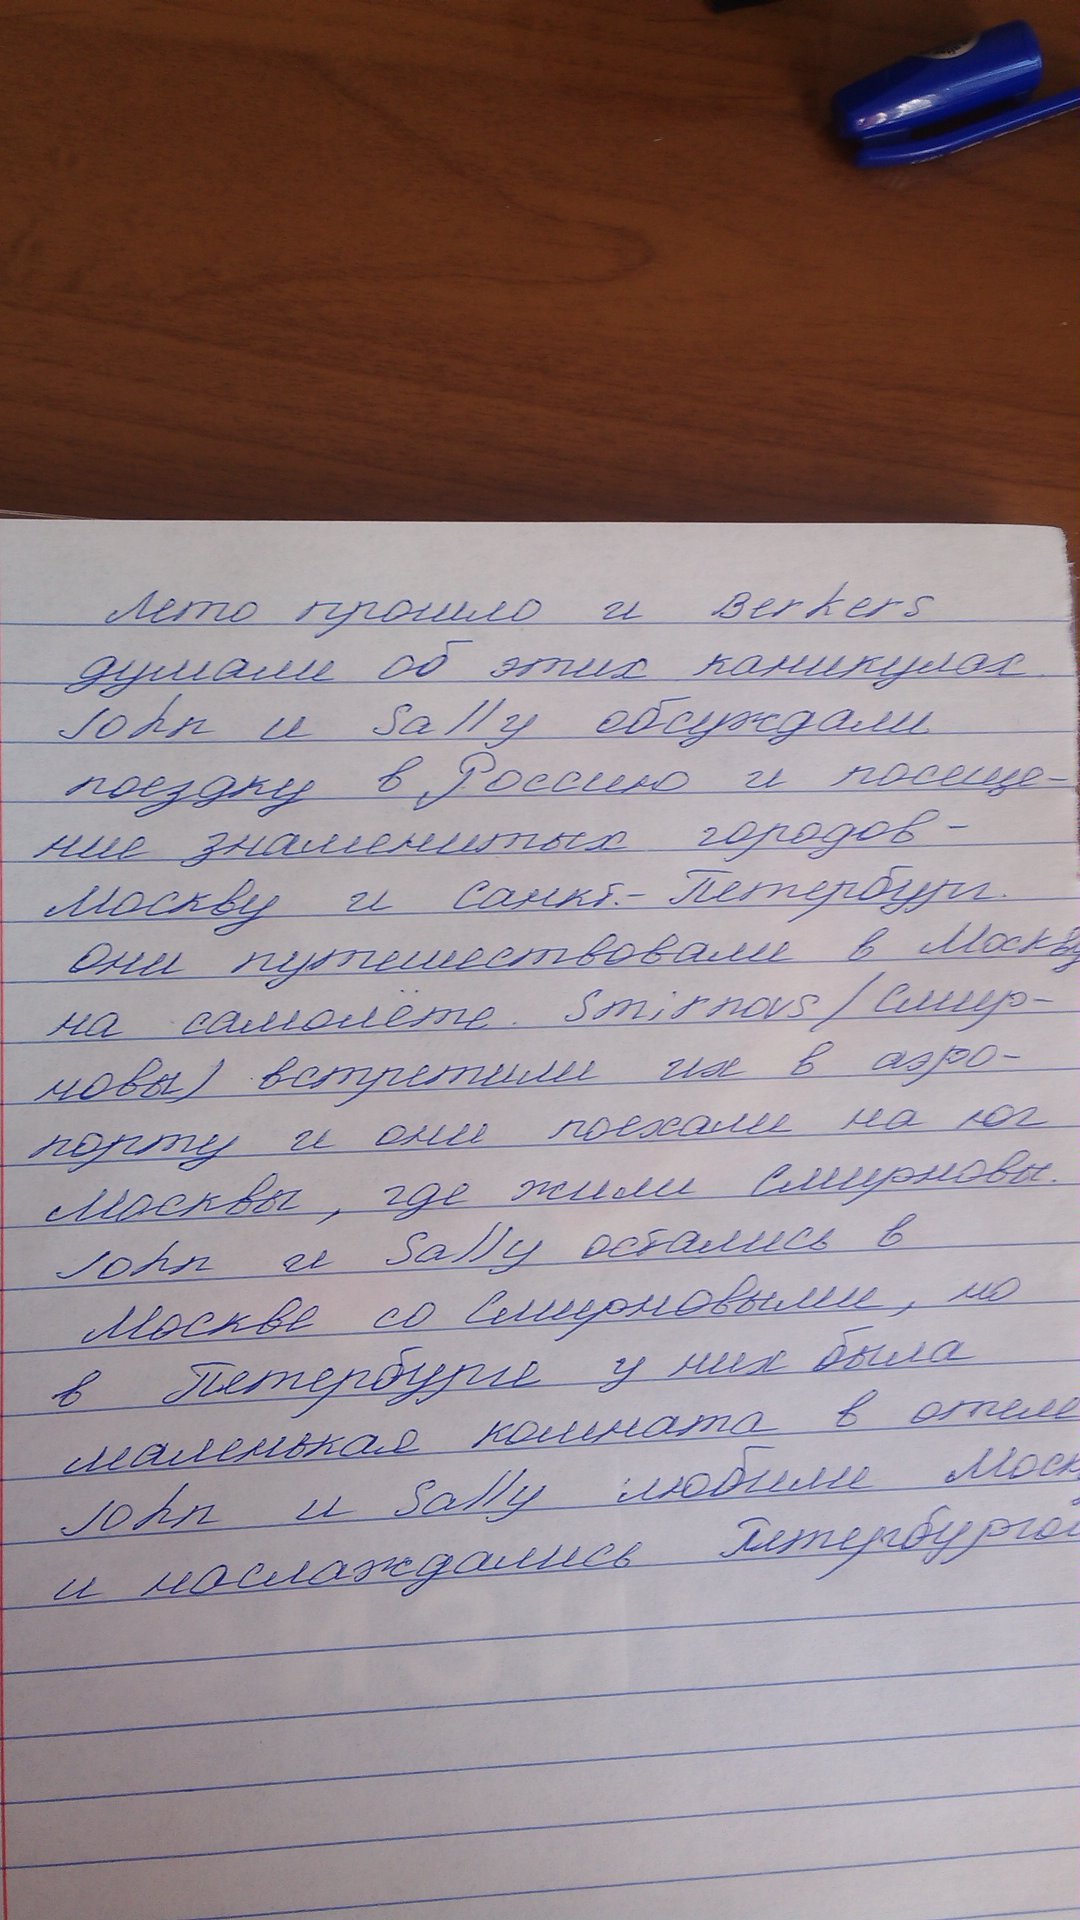 Лето прошло и Berkers
думали об этих каникулах.
John и Sally обсуждали
поездку в Россию и посеще-
ние знаменитых городов -
Москву и Санкт.- Петербург.
Они путешествовали в Москву
на самолёте. Smirnovs / Смир-
новы) встретили их в аэро-
порту и они поехали на юг
Москвы, где жили Смирновы.
John и Sally остались в
Москве со Смирновыми, но
в Петербурге у них была
маленькая комната в отеле
John и Sally любили Моск
и наслаждались Петербургом